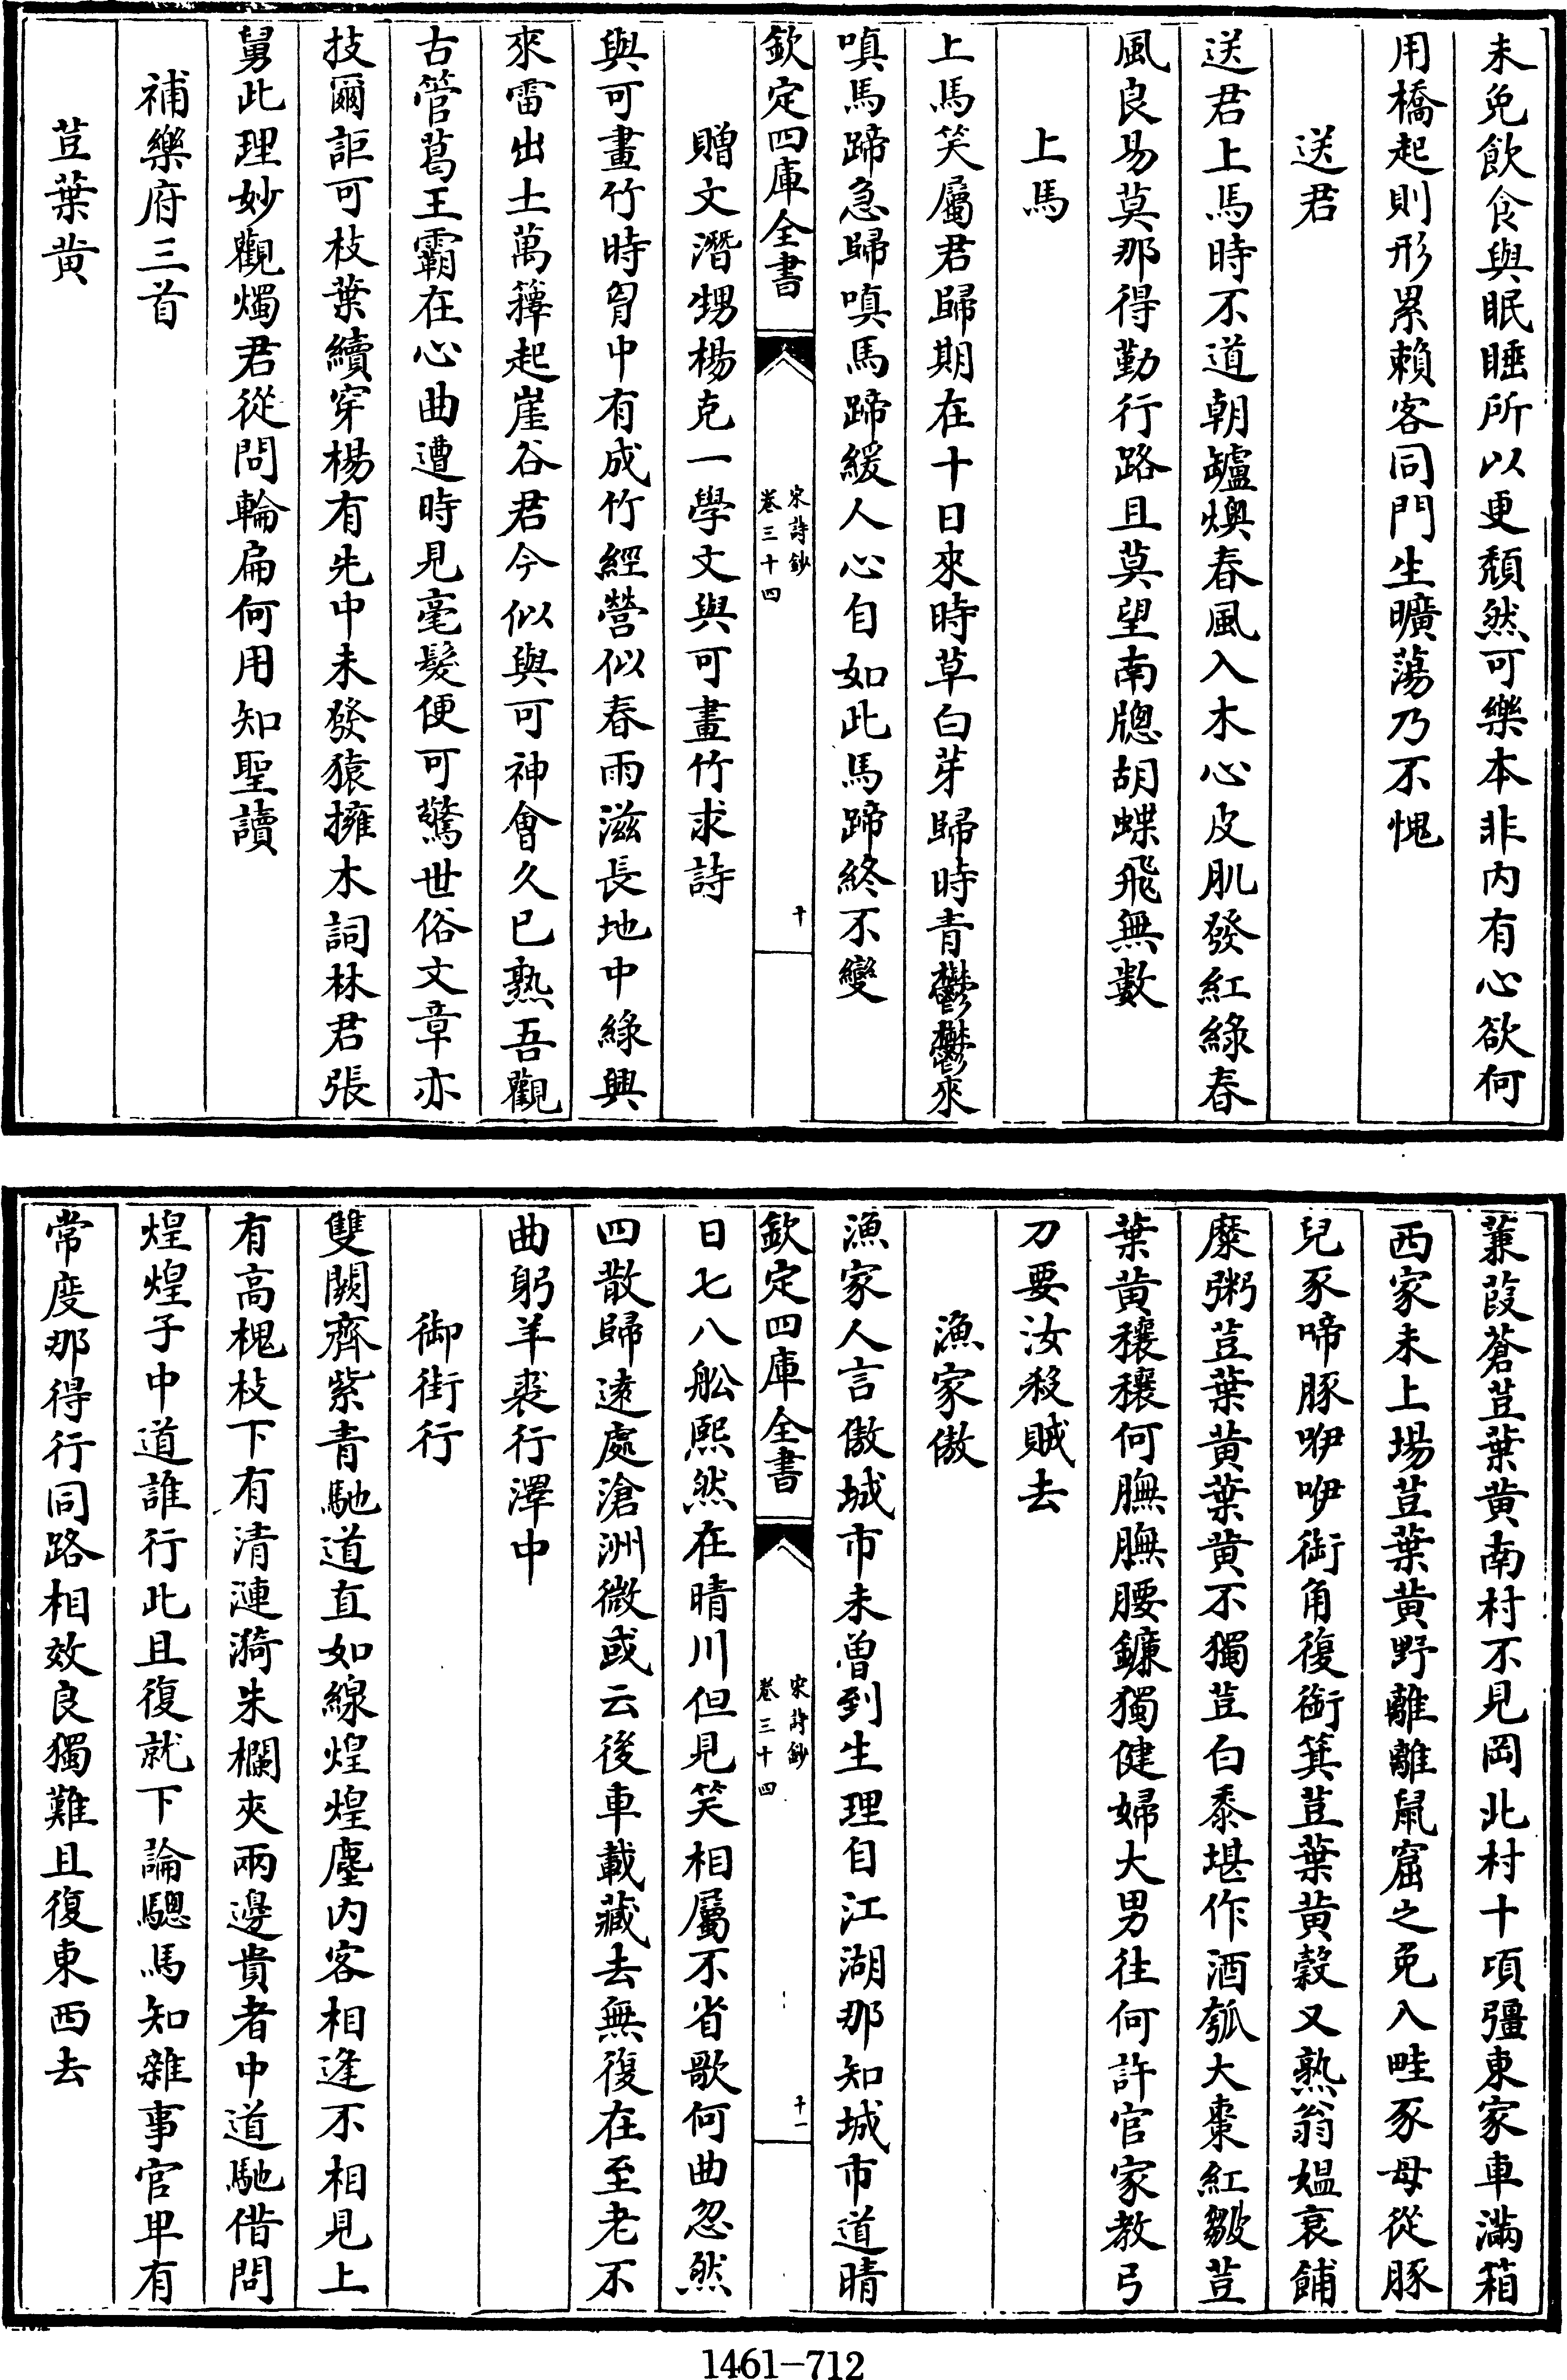 未免飲食與眠睡所以更頹然可樂本非内有心欲何
用橋起則形累賴客同門生曠蕩乃不愧
送君
送君上馬時不道朝罏燠春風入木心皮肌發紅綠春
風良易莫那得勤行路且莫望南牕胡蝶飛無數
上馬
上馬笑屬君歸期在十日來時草白芽歸時青鬱鬱來
嗔馬蹄急歸嗔馬蹄緩人心自如此馬蹄終不變
欽定四庫全書
宋詩鈔
卷三十四
十
贈文潛甥楊克一學文與可畫竹求詩
與可畫竹時胷中有成竹經營似春雨滋長地中綠興
來雷出土萬籜起崖谷君今似與可神會久已熟吾觀
古管葛王霸在心曲遭時見毫髮便可驚世俗文章亦
技爾詎可枝葉續穿楊有先中未發猿擁木詞林君張
舅此理妙觀燭君從問輪扁何用知聖讀
補樂府三首
荳葉黄
蒹葭蒼荳葉黄南村不見岡北村十頃彊東家車滿箱
西家未上場荳葉黄野離離鼠窟之兎入畦豕母從豚
兒豕啼豚咿咿銜角復銜箕荳葉黄穀又熟翁媼衰餔
糜粥荳葉黄葉黄不獨荳白黍堪作酒瓠大棗紅皺荳
葉黄穰穰何膴膴腰鎌獨健婦大男往何許官家教弓
刀要汝殺賊去
漁家傲
漁家人言傲城市未曾到生理自江湖那知城市道晴
欽定四庫全書
宋詩鈔
卷三十四
十一
日七八舩熙然在晴川但見笑相屬不省歌何曲忽然
四散歸遠處滄洲微或云後車載藏去無復在至老不
曲躬羊裘行澤中
御街行
雙闕齊紫青馳道直如線煌煌塵内客相逢不相見上
有高槐枝下有清漣漪朱欄夾兩邊貴者中道馳借問
煌煌子中道誰行此且復就下論驄馬知雜事官卑有
常度那得行同路相效良獨難且復東西去
1461-712